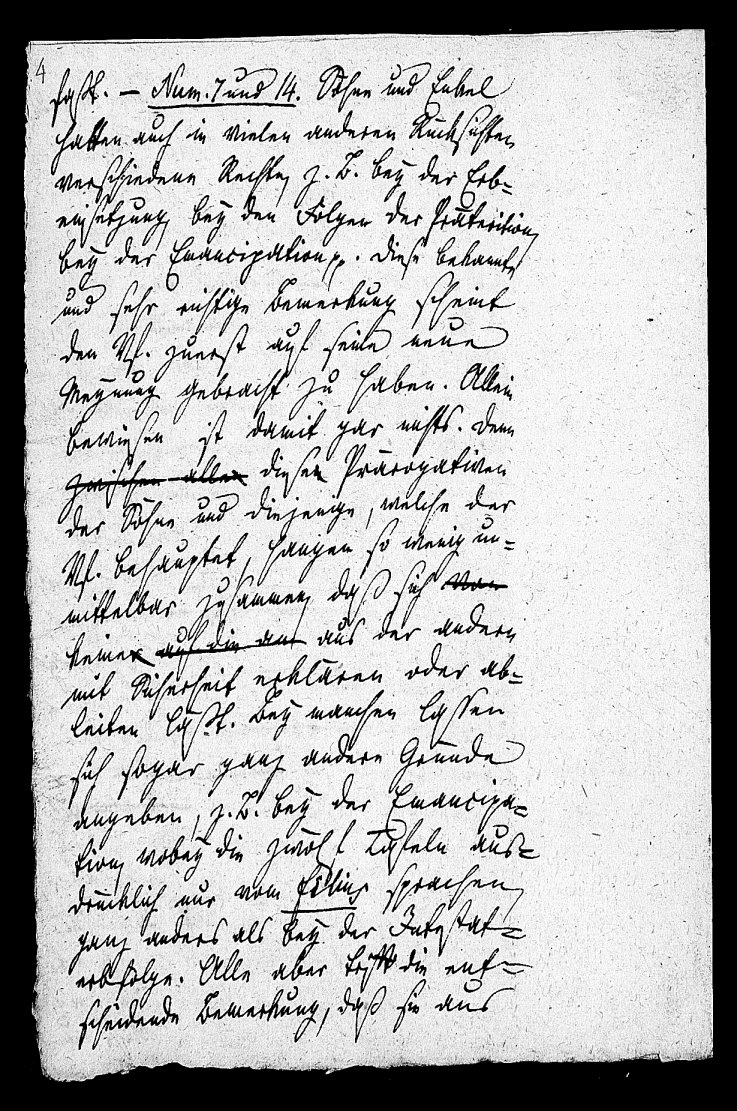 4
faßt. – Num. 7 und 14. Söhne und Enkel
hatten auch in vielen anderen Rücksichten
verschiedene Rechte, z. B. bey der Erb-
einsetzung, bey den Folgen der Präterition,
bey der Emancipation pp. Diese bekannte
und sehr richtige Bemerkung scheint
den Vf. zuerst auf seine neue
Meynung gebracht zu haben. Allein
bewiesen ist damit gar nichts. Denn
zwischen allen diesen Prärogativen
der Söhne und diejenige, welche der
Vf. behauptet, hangen so wenig un-
mittelbar zusammen, daß sich von
keiner auf die an aus der andern
mit Sicherheit erklären oder ab-
leiten läßt. Bey manchen lassen
sich sogar ganz andere Gründe
angeben, z. B. bey der Emancipa-
tion, wobey die zwölf Tafeln aus-
drücklich nur vom filius sprachen,
ganz anders als bey der Intestat-
erbfolge. Alle aber trifft die ent-
scheidende Bemerkung, daß sie aus